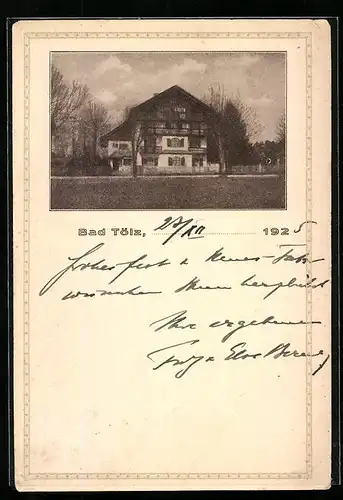 Bad Tölz, 27/XII 1925
frohes Fest u neues Jahr
wünschen Ihnen herzlichst
Ihre ergebenen
Fritz u Else